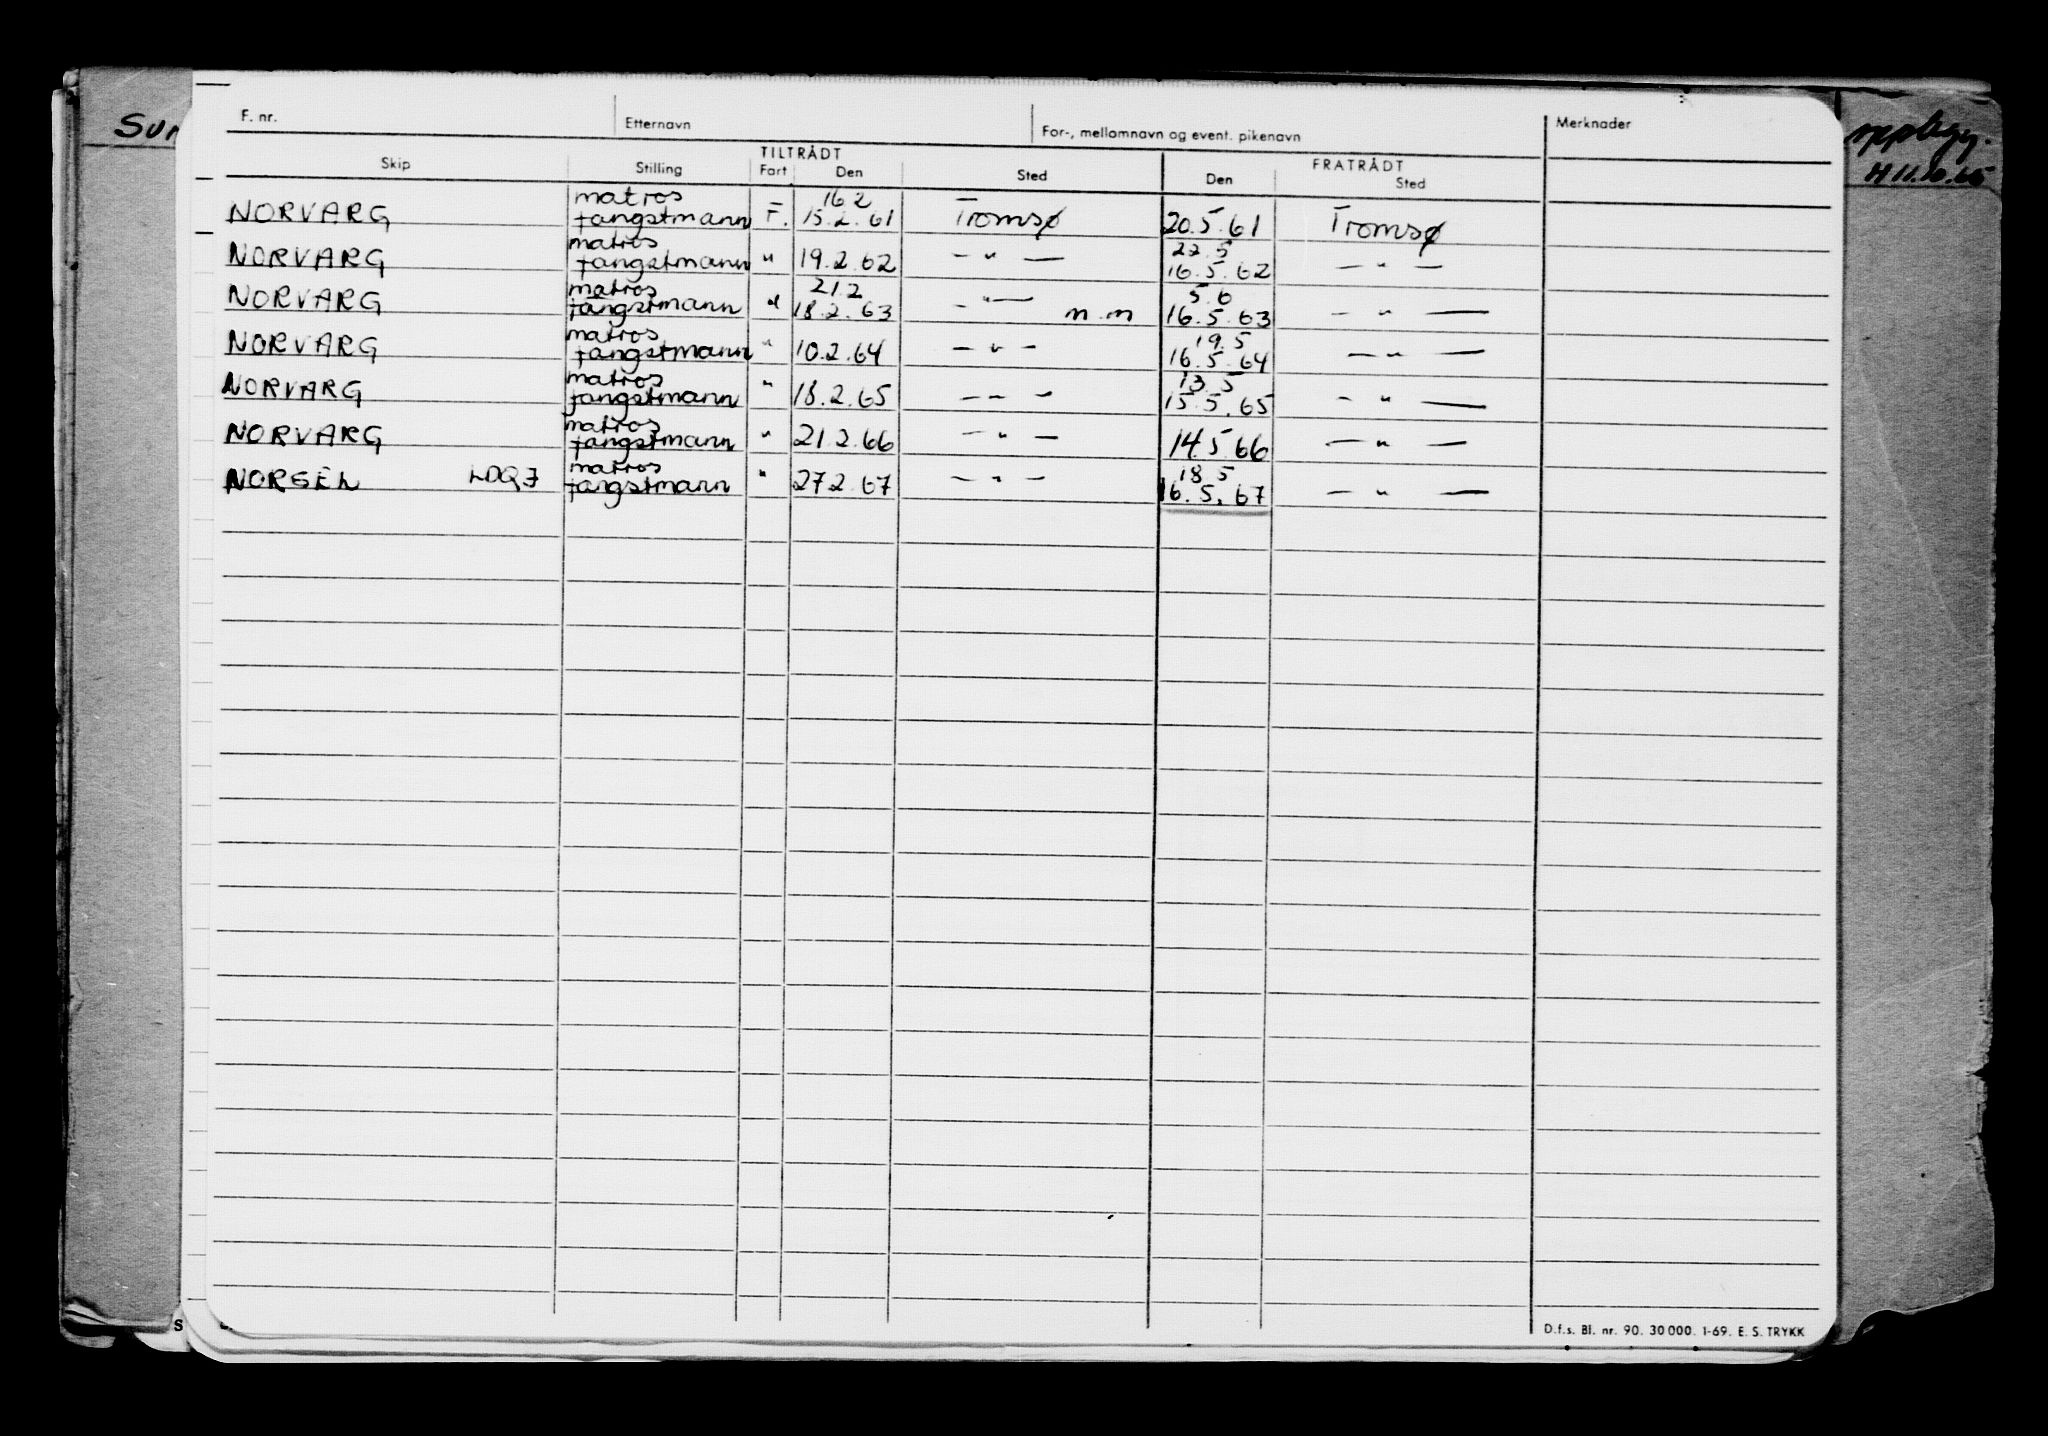 F. nr. Etternavn For-, mellomnavn og event. pikenavn Merknader
TILTRÅDT FRATRÅDT
Skip Stilling Fart Den Sted Den Sted
matros 16 2
NORVARG fangstmann F. 15.2.61 Tromsø 20.5.61 Tromsø
matros 22.5
NORVARG fangstmann " 19.2.62 — " — 16.5.62 — " —
matros 21.2 5.6
NORVARG fangstmann " 18.2.63 — " — m.m 16.5.63 — " —
matros 19.5
NORVARG fangstmann " 10.2.64 — " — 16.5.64 — " —
matros 13.5
NORVARG fangstmann " 18.2.65 — " — 15.5.65 — " —
matros
NORVARG fangstmann " 21.2.66 — " — 14.5.66 — " —
matros 18 5
NORSEL LDQJ fangstmann " 27.2.67 — " — 16.5.67 — " —
D.f.s. Bl. nr. 90. 30 000. 1-69. E. S. TRYKK